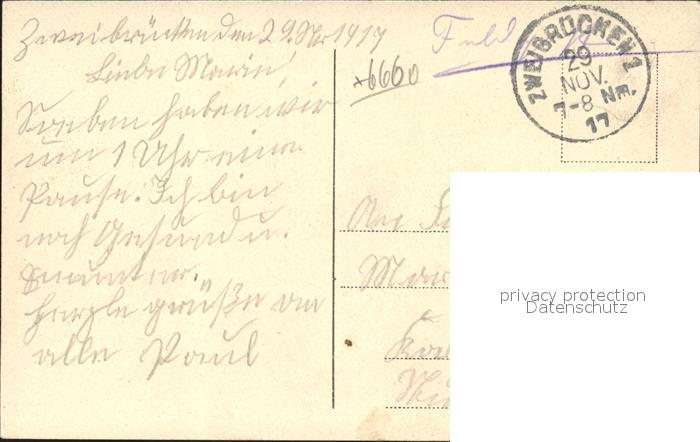 Zweibrücken den 29. Nov 1917
Liebe Marie!
Soeben haben wir
um 1 Uhr eine
Pause. Ich bin
noch Gesund u.
munter.
Herzle grüße an
alle Paul
Feld
6660
ZWEIBRÜCKEN 1
29
NOV.
7-8 Nm.
17
An
Mar
privacy protection
Datenschutz